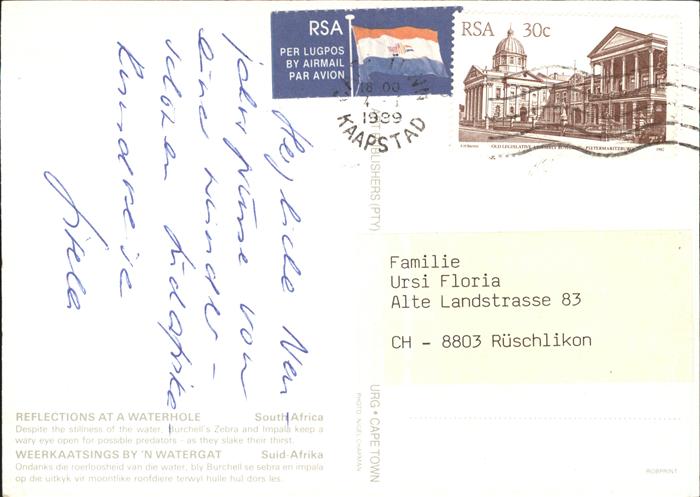 RSA
PER LUGPOS
BY AIRMAIL
PAR AVION
RSA 30c
OLD LEGISLATIVE ASSEMBLY BUILDING - PIETERMARITZBURG
1982
18 00
1989
KAAPSTAD
Herzliche Neu-
jahrsgrüsse von
einer wunder-
schönen Südafrika
Rundreise
Gisela
PUBLISHERS (PTY)
URG • CAPE TOWN
PHOTO: NIGEL CHAPMAN
Familie
Ursi Floria
Alte Landstrasse 83
CH - 8803 Rüschlikon
REFLECTIONS AT A WATERHOLE South Africa
Despite the stillness of the water, Burchell's Zebra and Impala keep a
wary eye open for possible predators - as they slake their thirst.
WEERKAATSINGS BY 'N WATERGAT Suid-Afrika
Ondanks die roerloosheid van die water, bly Burchell se sebra en impala
op die uitkyk vir moontlike roofdiere terwyl hulle hul dors les.
ROBPRINT